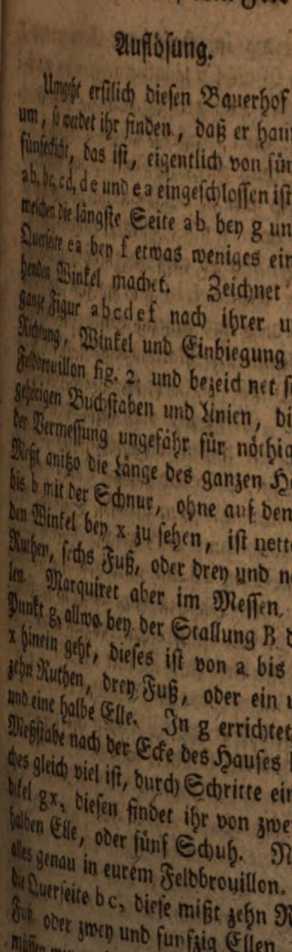 Auflösung.
Umgeht erstlich diesen Bauerhof
um, so werdet ihr finden, daß er hau
fünfeckicht, das ist, eigentlich von fün
ab, bc, cd, de und ea eingeschlossen ist
welchen die längste Seite ab bey g un
Querseite ea bey f etwas weniges ein
Winkel machet. Zeichnet
ganze Figur abcdef nach ihrer u
Richtung, Winkel und Einbiegung
Feldbrouillon fig. 2. und bezeichnet s
gehörigen Buchstaben und Linien, di
der Vermessung ungefähr für nöthig
Meßt anitzo die Länge des ganzen H
bis b mit der Schnur, ohne auf den
den Winkel bey x zu sehen, ist nett
Ruthen, sechs Fuß, oder drey und n
len. Marquiret aber im Messen
Punkt g, allwo bey der Stallung B d
x hinein geht, dieses ist von a bis
zehn Ruthen, drey Fuß, oder ein u
und eine halbe Elle. In g errichtet
Meßstabe nach der Ecke des Hauses
ches gleich viel ist, durch Schritte ein
dikel gx, diesen findet ihr von zwe
halben Elle, oder fünf Schuh. M
alles genau in eurem Feldbrouillon.
die Querseite bc, diese mißt zehn R
Fuß oder zwey und funfzig Ellen